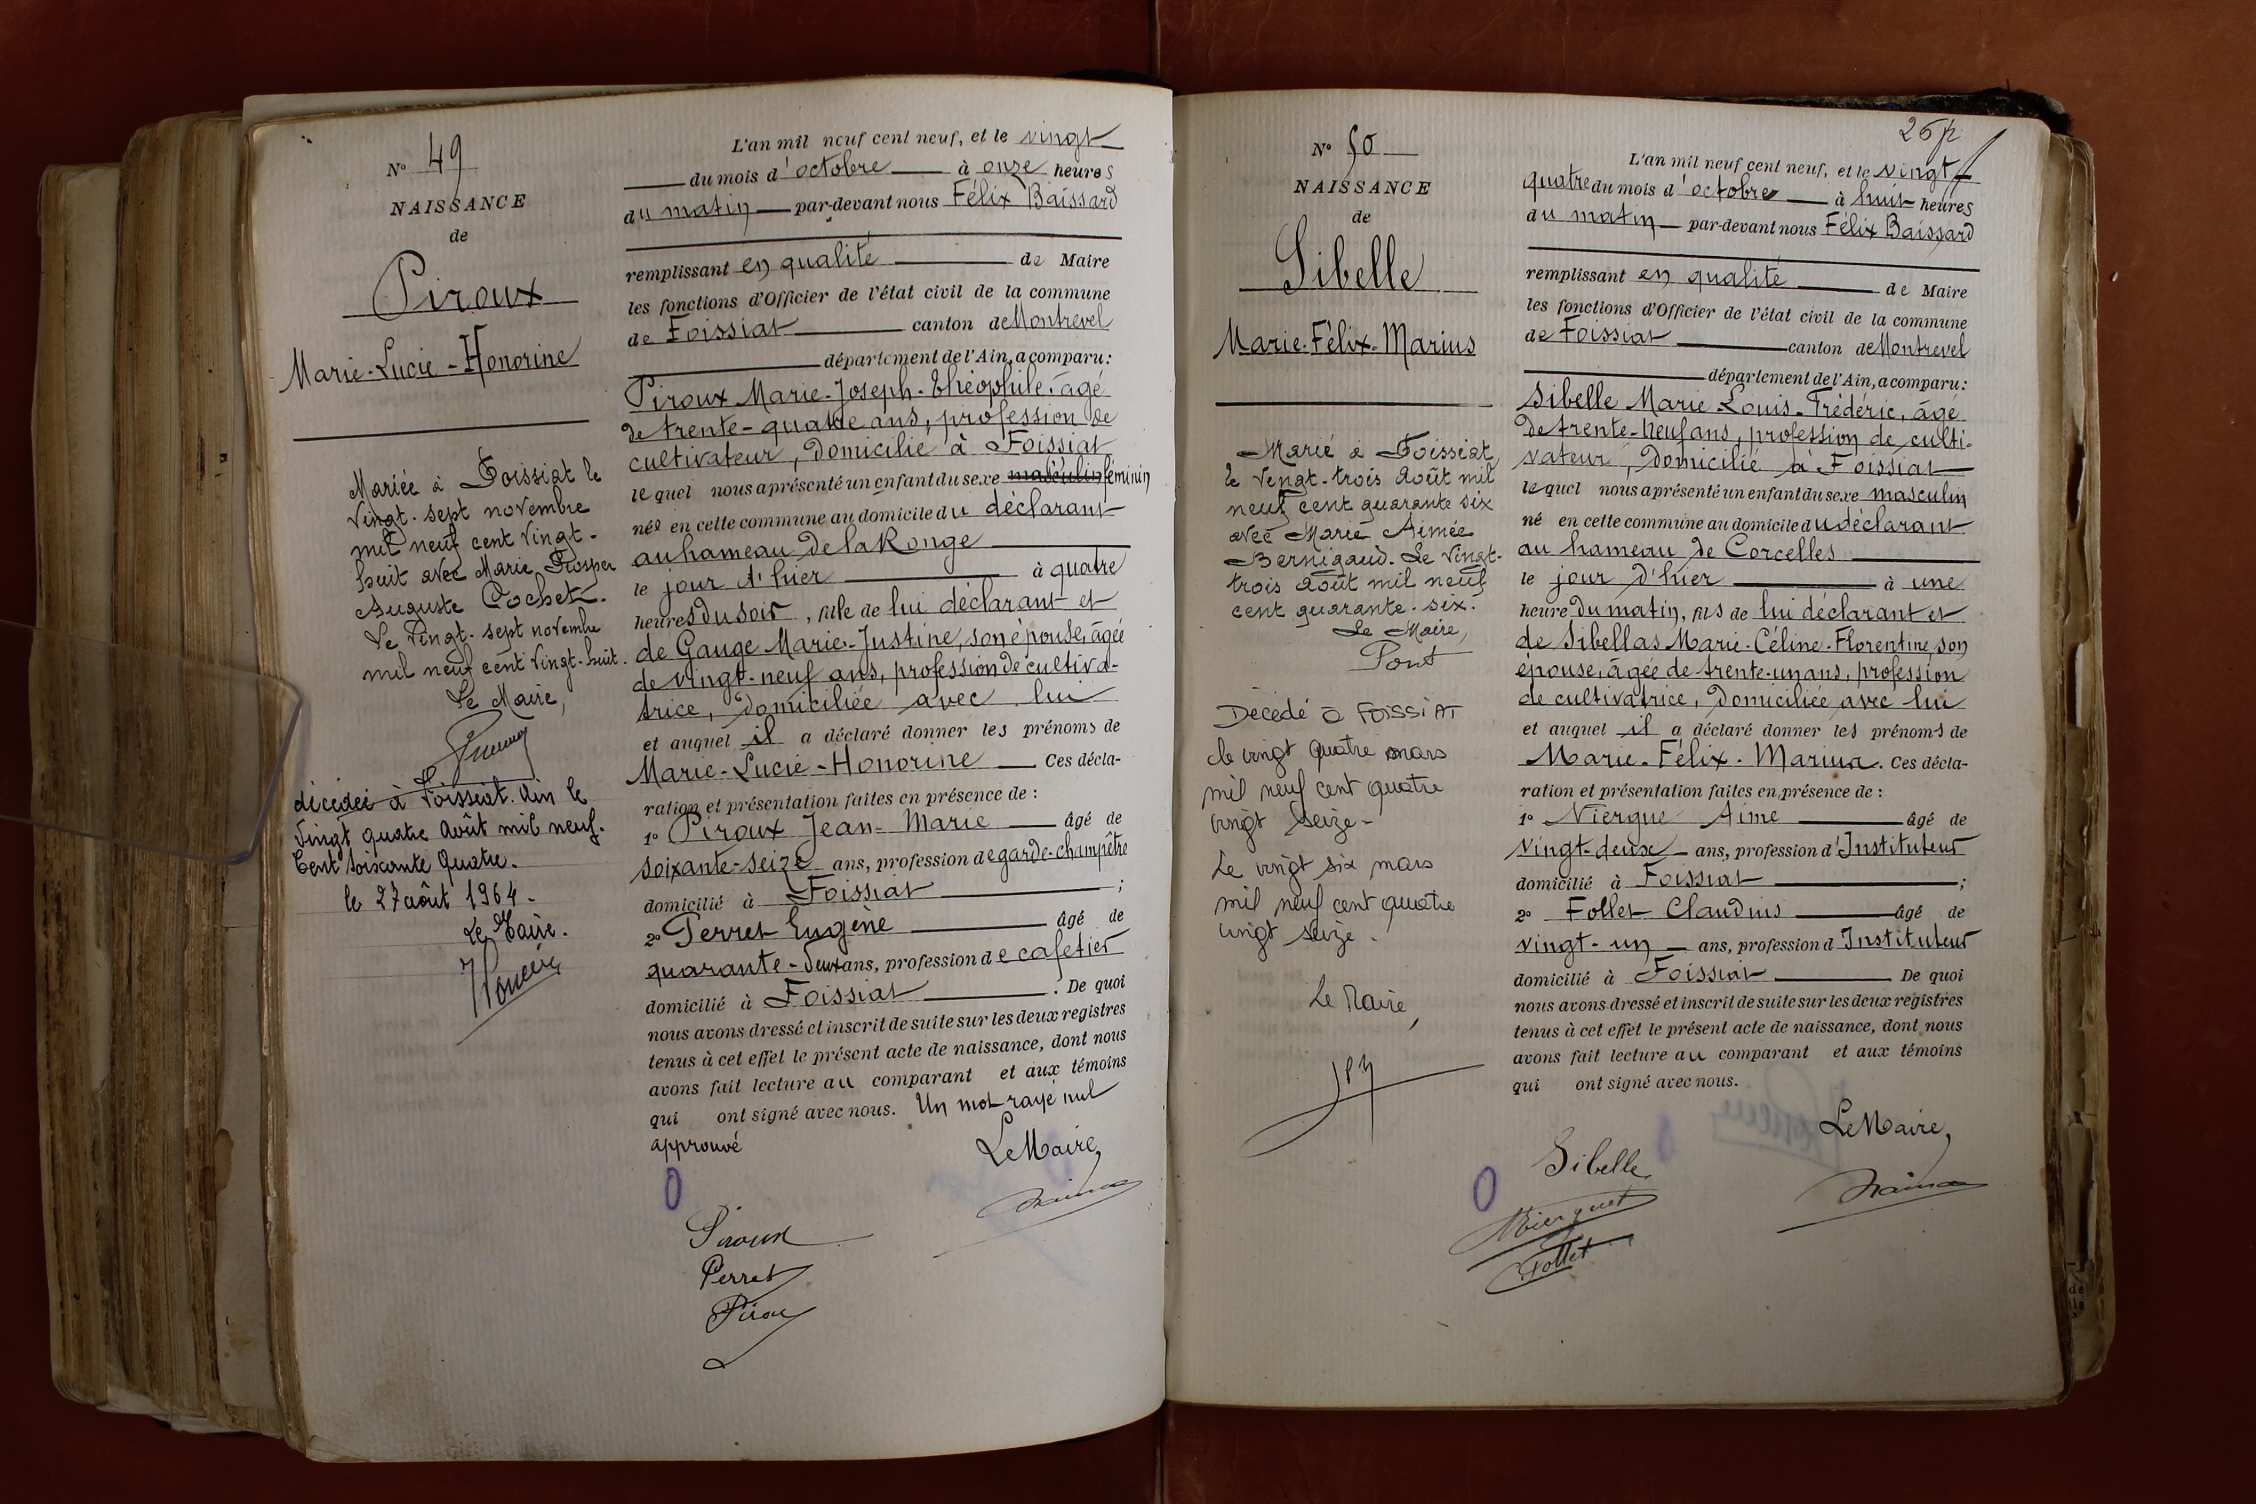 N° 49
NAISSANCE
de
Piroux
Marie-Lucie-Honorine
Mariée à Foissiat le
vingt-sept novembre
mil neuf cent vingt-
huit avec Marie Prosper
Auguste Cochet.
Le vingt-sept novembre
mil neuf cent vingt-huit.
Le Maire,
décédée à Foissiat. Ain le
Vingt quatre Août mil neuf.
Cent soixante Quatre.
le 27 août 1964.
Le Maire.
L'an mil neuf cent neuf, et le vingt
du mois d'octobre à onze heures
du matin par-devant nous Félix Baissard
remplissant en qualité de Maire
les fonctions d'Officier de l'état civil de la commune
de Foissiat canton de Montrevel
département de l'Ain, a comparu:
Piroux Marie-Joseph-Théophile, âgé
de trente-quatre ans, profession de
cultivateur, domicilié à Foissiat
le quel nous a présenté un enfant du sexe masculin féminin
née en cette commune au domicile du déclarant
au hameau de la Ronge
le jour d'hier à quatre
heures du soir, fille de lui déclarant et
de Gauge Marie-Justine, son épouse, âgée
de vingt-neuf ans, profession de cultiva-
trice, domiciliée avec lui
et auquel il a déclaré donner les prénoms de
Marie-Lucie-Honorine Ces décla-
ration et présentation faites en présence de :
1° Piroux Jean-Marie âgé de
soixante-seize ans, profession de garde-champêtre
domicilié à Foissiat ;
2° Perret Eugène âgé de
quarante-deux ans, profession de cafetier
domicilié à Foissiat . De quoi
nous avons dressé et inscrit de suite sur les deux registres
tenus à cet effet le présent acte de naissance, dont nous
avons fait lecture au comparant et aux témoins
qui ont signé avec nous. Un mot rayé nul
approuvé
Le Maire,
Piroux
Perret
Pirou
26 p
N° 50
NAISSANCE
de
Sibelle
Marie-Félix-Marius
Marié à Foissiat
le vingt-trois Août mil
neuf cent quarante six
avec Marie Aimée
Bernigaud. Le vingt-
trois août mil neuf
cent quarante-six.
Le Maire,
Pont
Décédé à FOISSIAT
le vingt quatre mars
mil neuf cent quatre
vingt seize-
Le vingt six mars
mil neuf cent quatre
vingt seize.
Le Maire,
L'an mil neuf cent neuf, et le vingt
quatre du mois d'octobre à huit heures
du matin par-devant nous Félix Baissard
remplissant en qualité de Maire
les fonctions d'Officier de l'état civil de la commune
de Foissiat canton de Montrevel
département de l'Ain, a comparu:
Sibelle Marie-Louis-Frédéric, âgé
de trente-neuf ans, profession de culti-
vateur, domicilié à Foissiat
le quel nous a présenté un enfant du sexe masculin
né en cette commune au domicile du déclarant
au hameau de Corcelles
le jour d'hier à une
heure du matin, fils de lui déclarant et
de Sibellas Marie-Céline-Florentine, son
épouse, âgée de trente-un ans, profession
de cultivatrice, domiciliée avec lui
et auquel il a déclaré donner les prénoms de
Marie-Félix-Marius. Ces décla-
ration et présentation faites en présence de :
1° Niergue Aimé âgé de
vingt-deux ans, profession d'Instituteur
domicilié à Foissiat ;
2° Follet Claudius âgé de
vingt-un ans, profession d'Instituteur
domicilié à Foissiat De quoi
nous avons dressé et inscrit de suite sur les deux registres
tenus à cet effet le présent acte de naissance, dont nous
avons fait lecture au comparant et aux témoins
qui ont signé avec nous.
Le Maire,
Sibelle
Follet